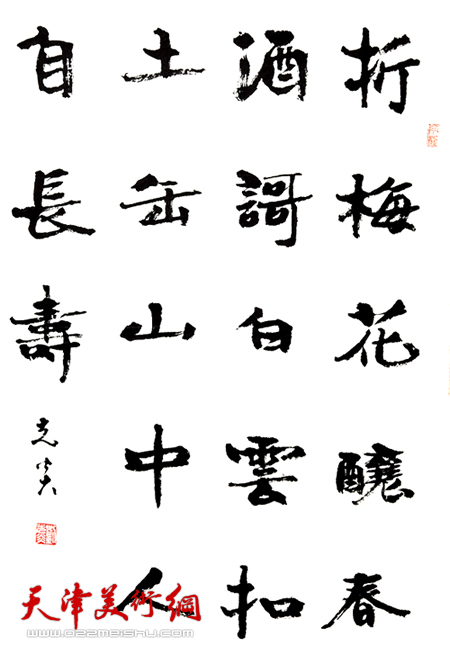 折梅花釀春
酒謌白雲扣
土缶山中人
自長壽
天津美術網
www.022meishu.com